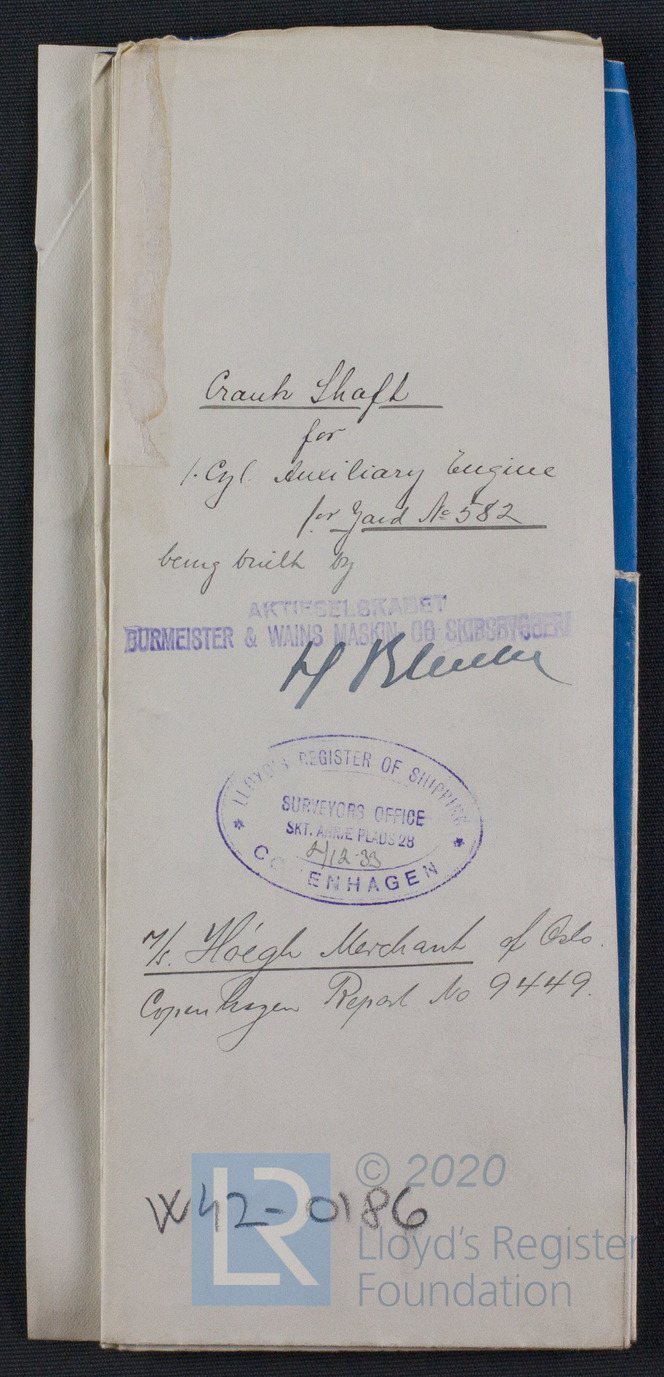 Crank Shaft
for
1. Cyl. Auxiliary Engine
for Yard No 582
being built by
AKTIESELSKABET
BURMEISTER & WAINS MASKIN OG SKIBSBYGGERI
LLOYD'S REGISTER OF SHIPPING
SURVEYORS OFFICE
SKT. ANNÆ PLADS 28
2/12-33
COPENHAGEN
M/s. Höegh Merchant of Oslo.
Copenhagen Report No 9449.
W42-0186
LR
© 2020
Lloyd's Register
Foundation